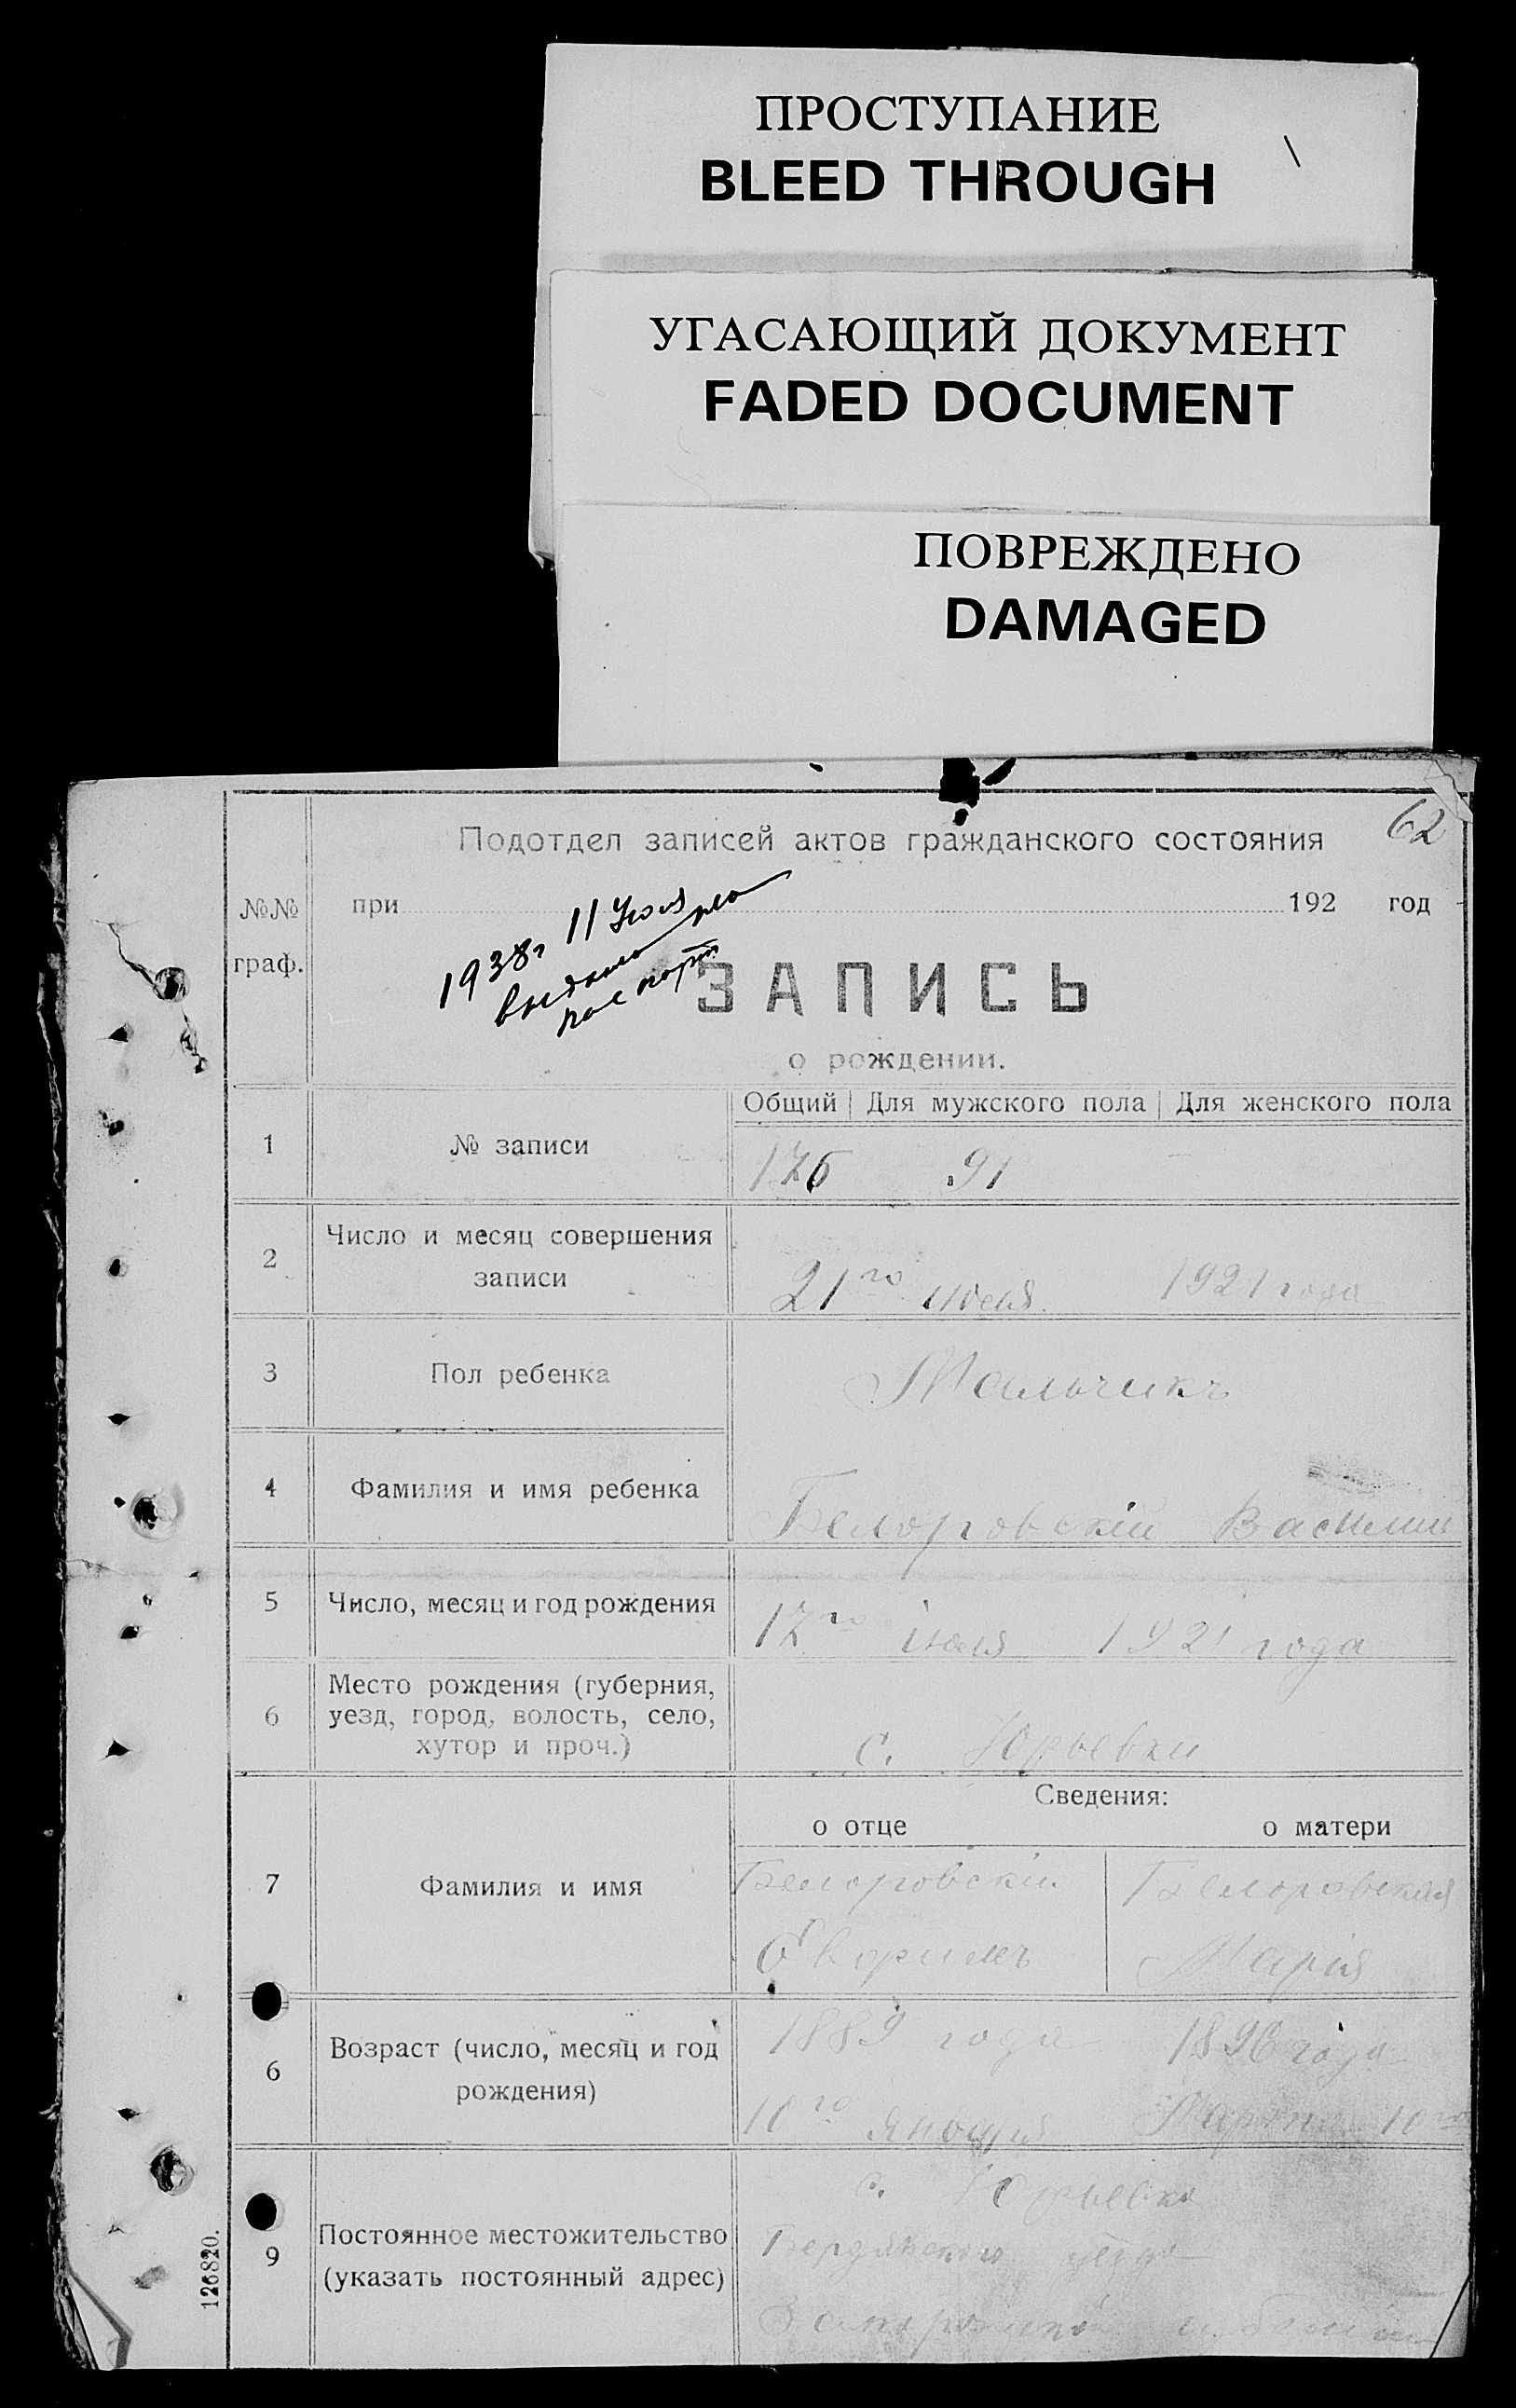 ПРОСТУПАНИЕ
BLEED THROUGH
УГАСАЮЩИЙ ДОКУМЕНТ
FADED DOCUMENT
ПОВРЕЖДЕНО
DAMAGED
62
Подотдел записей актов гражданского состояния
№№ граф.
при 192 год
1938г 11 Июля
выдано
паспорт
ЗАПИСЬ
о рождении.
Общий Для мужского пола Для женского пола
1 № записи 176 91
2 Число и месяц совершения
записи
21го июля 1921 года
3 Пол ребенка Мальчикъ
4 Фамилия и имя ребенка Белоровскій Василий
5 Число, месяц и год рождения 17го іюля 1921 года
6 Место рождения (губерния,
уезд, город, волость, село,
хутор и проч.)
с. Юрьевки
Сведения:
о отце о матери
7 Фамилия и имя
Белоровскій Белоровская
Марія
6 Возраст (число, месяц и год
рождения)
1889 года 1896 года
10го января Марта 10го
9 Постоянное местожительство
(указать постоянный адрес)
с. Юрьевка
Бердянского уезда
126820.